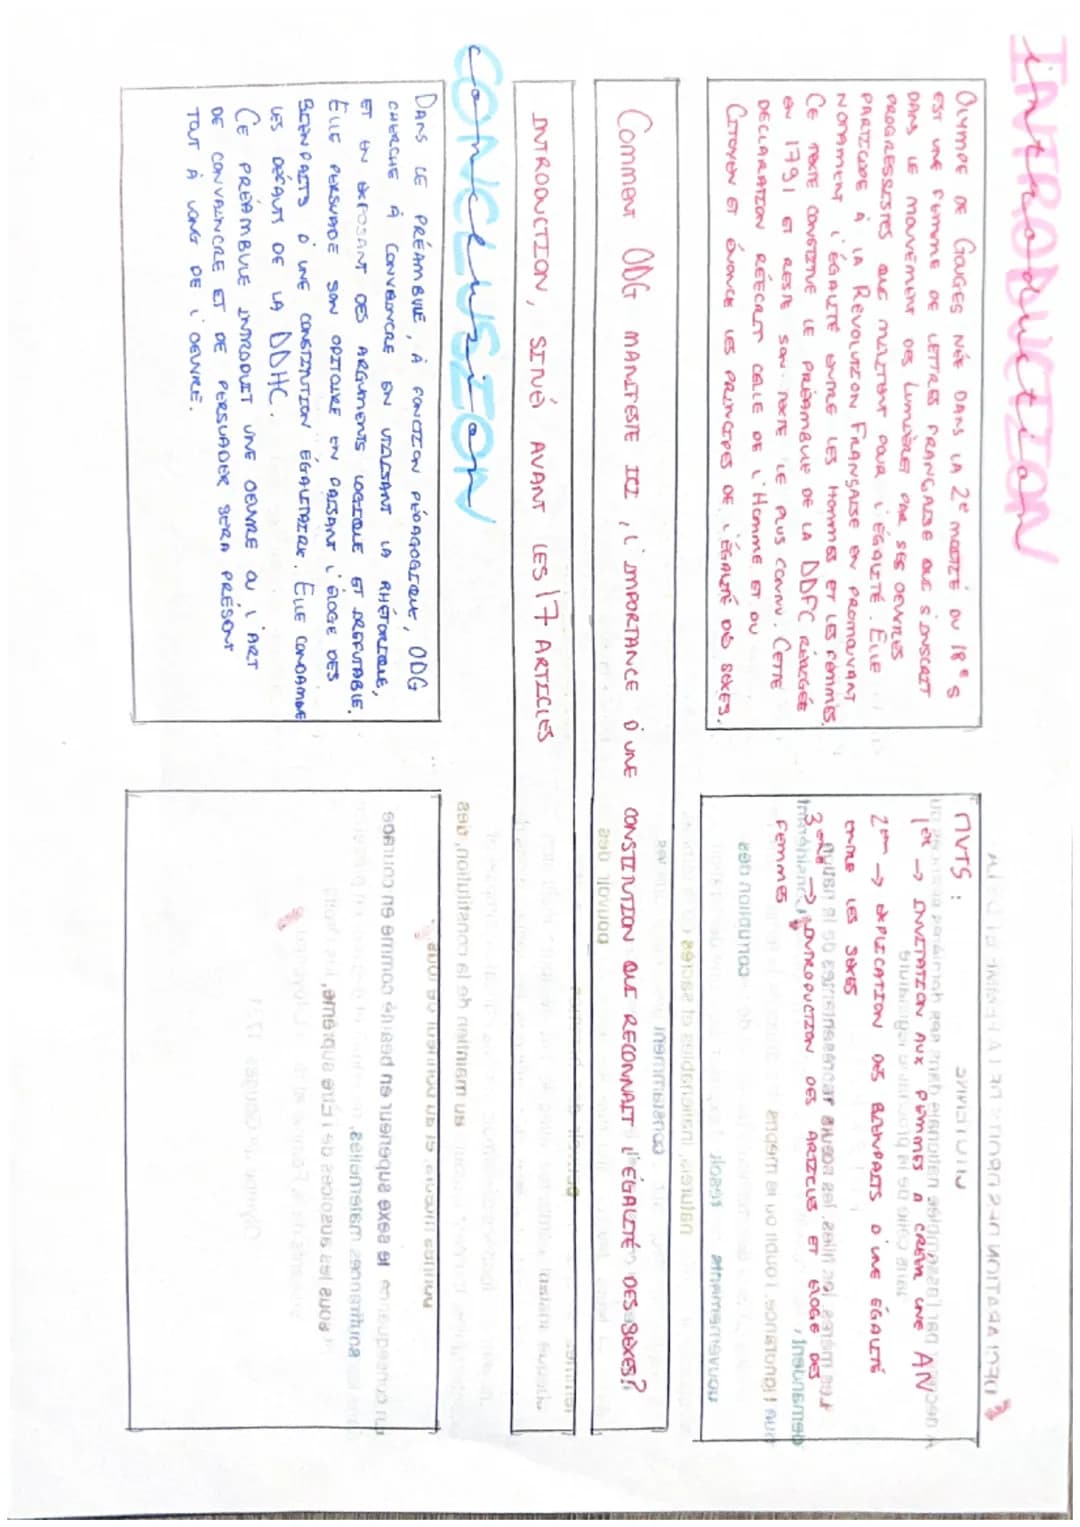 INTRODUCTION
introduction
OLYMPE DE GOUGES NÉE DANS LA 2e MOITIÉ DU 18e S
EST UNE FEMME DE LETTRES FRANÇAISE QUI S'INSCRIT
DANS LE MOUVEMENT DES LUMIÈRES PAR SES OEUVRES
PROGRESSISTES QUI MILITENT POUR L'ÉGALITÉ. ELLE
PARTICIPE À LA REVOLUTION FRANÇAISE EN PROMOUVANT
NOTAMENT L'ÉGALITÉ ENTRE LES HOMMES ET LES FEMMES.
CE TEXTE CONSTITUE LE PRÉAMBULE DE LA DDFC RÉDIGÉE
EN 1791 ET RESTE SON TEXTE LE PLUS CONNU. CETTE
DÉCLARATION RÉÉCRIT CELLE DE L'HOMME ET DU
CITOYEN ET ÉNONCE LES PRINCIPES DE L'ÉGALITÉ DES SEXES.
MVTS :
1er → INVITATION AUX FEMMES A CRÉER UNE AN
2em → EXPLICATION DES BIENFAITS D'UNE ÉGALITÉ
ENTRE LES SEXES
3eme → INTRODUCTION DES ARTICLES ET ÉLOGE DES
FEMMES
COMMENT ODG MANIFESTE ICI, L'IMPORTANCE D'UNE CONSTITUTION QUI RECONNAIT L'ÉGALITÉ DES SEXES?
INTRODUCTION, SITUÉ AVANT LES 17 ARTICLES
CONCLUSION
conclusion
DANS CE PRÉAMBULE, À FONCTION PÉDAGOGIQUE, ODG
CHERCHE À CONVAINCRE EN UTILISANT LA RHÉTORIQUE,
ET EN EXPOSANT DES ARGUMENTS LOGIQUE ET IRREFUTABLE.
ELLE PERSUADE SON ODITOIRE EN FAISANT L'ÉLOGE DES
BIENFAITS D'UNE CONSTITUTION ÉGALITAIRE. ELLE CONDAMNE
LES DÉFAUTS DE LA DDHC.
CE PRÉAMBULE INTRODUIT UNE OEUVRE OU L'ART
DE CONVAINCRE ET DE PERSUADER SERA PRÉSENT
TOUT À LONG DE L'OEUVRE.